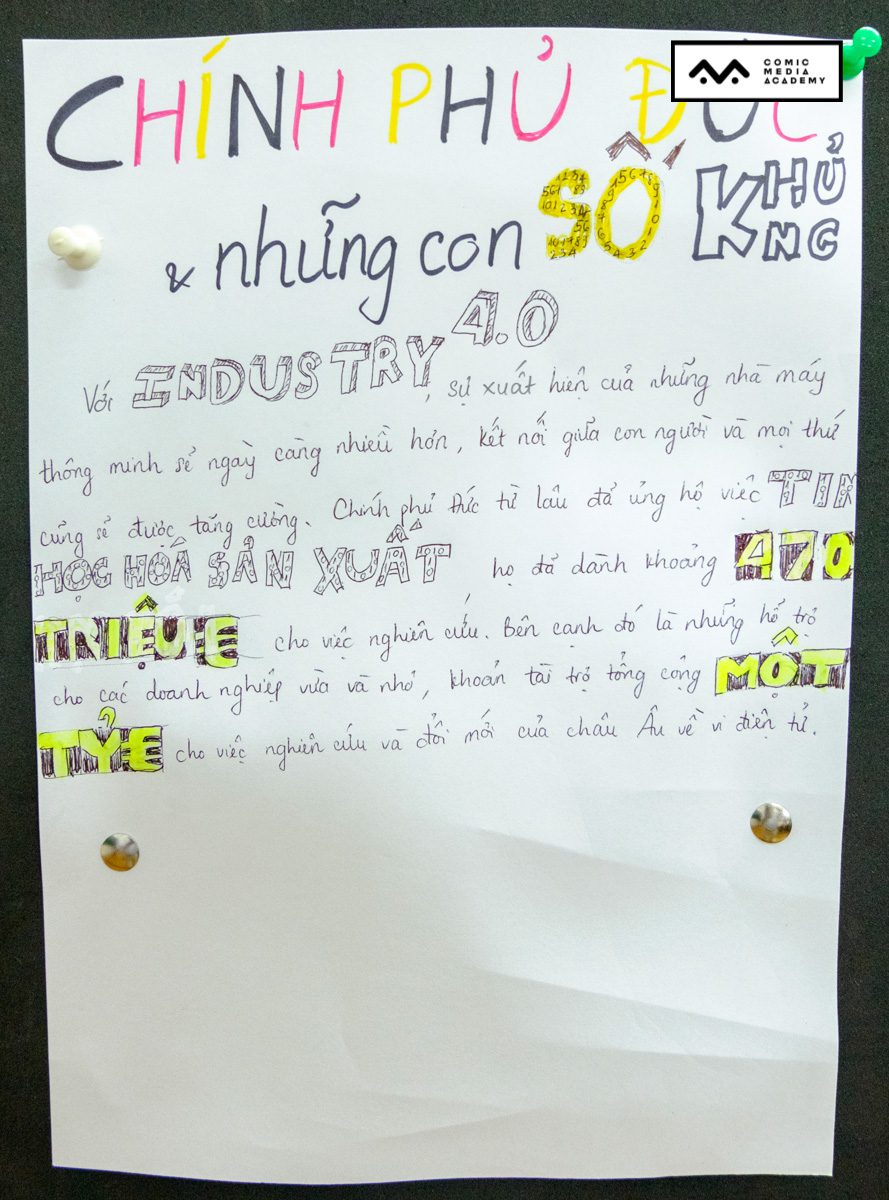 COMIC
MEDIA
ACADEMY
CHÍNH PHỦ ĐỨC
& những con SỐ KHỦNG
Với INDUSTRY 4.0, sự xuất hiện của những nhà máy
thông minh sẽ ngày càng nhiều hơn, kết nối giữa con người và mọi thứ
cũng sẽ được tăng cường. Chính phủ Đức từ lâu đã ủng hộ việc TIN
HỌC HÓA SẢN XUẤT họ đã dành khoảng 470
TRIỆU € cho việc nghiên cứu. Bên cạnh đó là những hổ trợ
cho các doanh nghiệp vừa và nhỏ, khoản tài trợ tổng cộng MỘT
TỶ € cho việc nghiên cứu và đổi mới của châu Âu về vi điện tử.